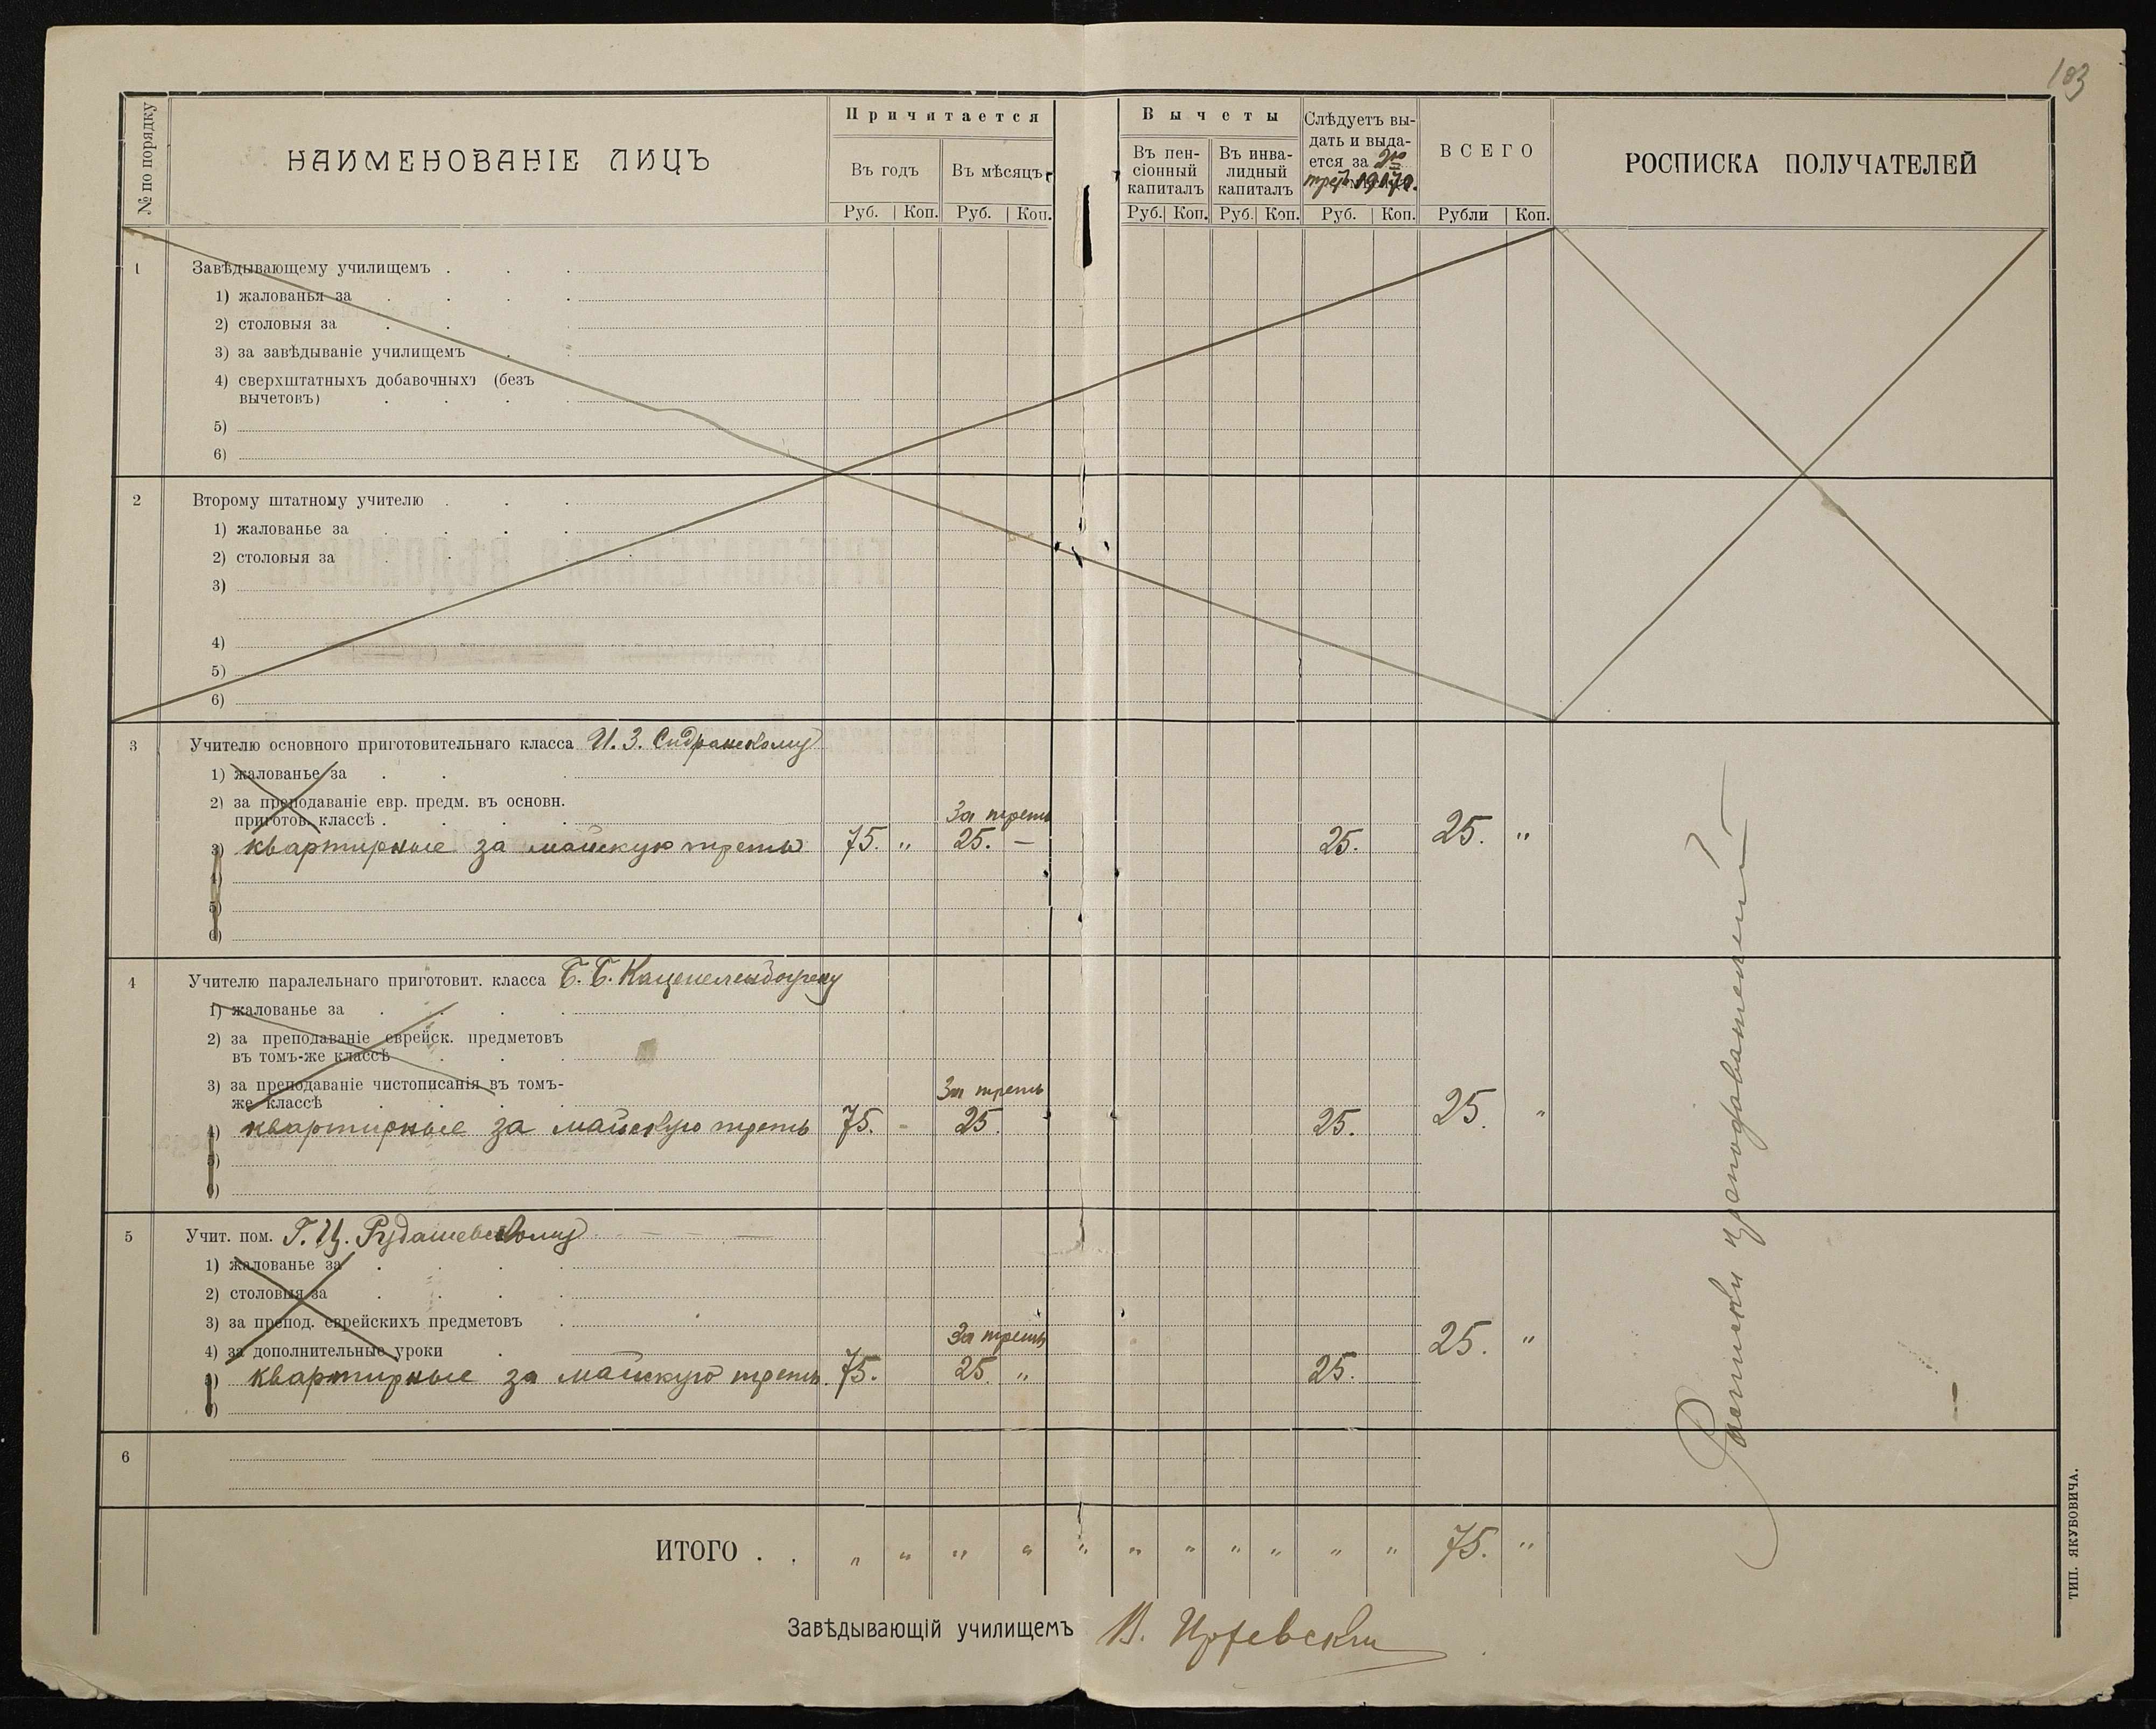 103
№ по порядку
НАИМЕНОВАНІЕ ЛИЦЪ
Причитается
Въ годъ
Въ мѣсяцъ
Руб. Коп. Руб. Коп.
Вычеты
Въ пен-
сіонный
капиталъ
Въ инва-
лидный
капиталъ
Руб. Коп. Руб. Коп.
Слѣдуетъ вы-
дать и выда-
ется за 2ю
треть 1917 г.
Руб. Коп.
ВСЕГО
Рубли Коп.
РОСПИСКА ПОЛУЧАТЕЛЕЙ
1 Завѣдывающему училищемъ . . .
1) жалованья за . . . .
2) столовыя за . . .
3) за завѣдываніе училищемъ . .
4) сверхштатныхъ добавочныхъ (безъ
вычетовъ) . . . .
5)
6)
2 Второму штатному учителю . . .
1) жалованье за . . . .
2) столовыя за . . .
3)
4)
5)
6)
3 Учителю основного приготовительнаго класса И. З. Сидранскому
1) жалованье за . . .
2) за преподаваніе евр. предм. въ основн.
приготов. классѣ . . . . За треть
3) квартирные за майскую треть 75. „ 25. — 25. 25. „
4)
5)
6)
4 Учителю паралельнаго приготовит. класса Б. Б. Каценеленбогену
1) жалованье за . . . .
2) за преподаваніе еврейск. предметовъ
въ томъ-же классѣ . . .
3) за преподаваніе чистописанія въ томъ-
же классѣ . . . . За треть
4) квартирные за майскую треть 75. - 25. 25. 25. „
5)
6)
5 Учит. пом. Г. Ц. Рудашевскому — — —
1) жалованье за . . . .
2) столовыя за . . . .
3) за препод. еврейскихъ предметовъ .
4) за дополнительные уроки . . За треть
5) квартирные за майскую треть. 75. 25. „ 25. 25. „
6)
6
Расписки преподавателей
ИТОГО . . „ „ „ „ „ „ „ „ „ „ „ 75. „
Завѣдывающій училищемъ В.
ТИП. ЯКУБОВИЧА.